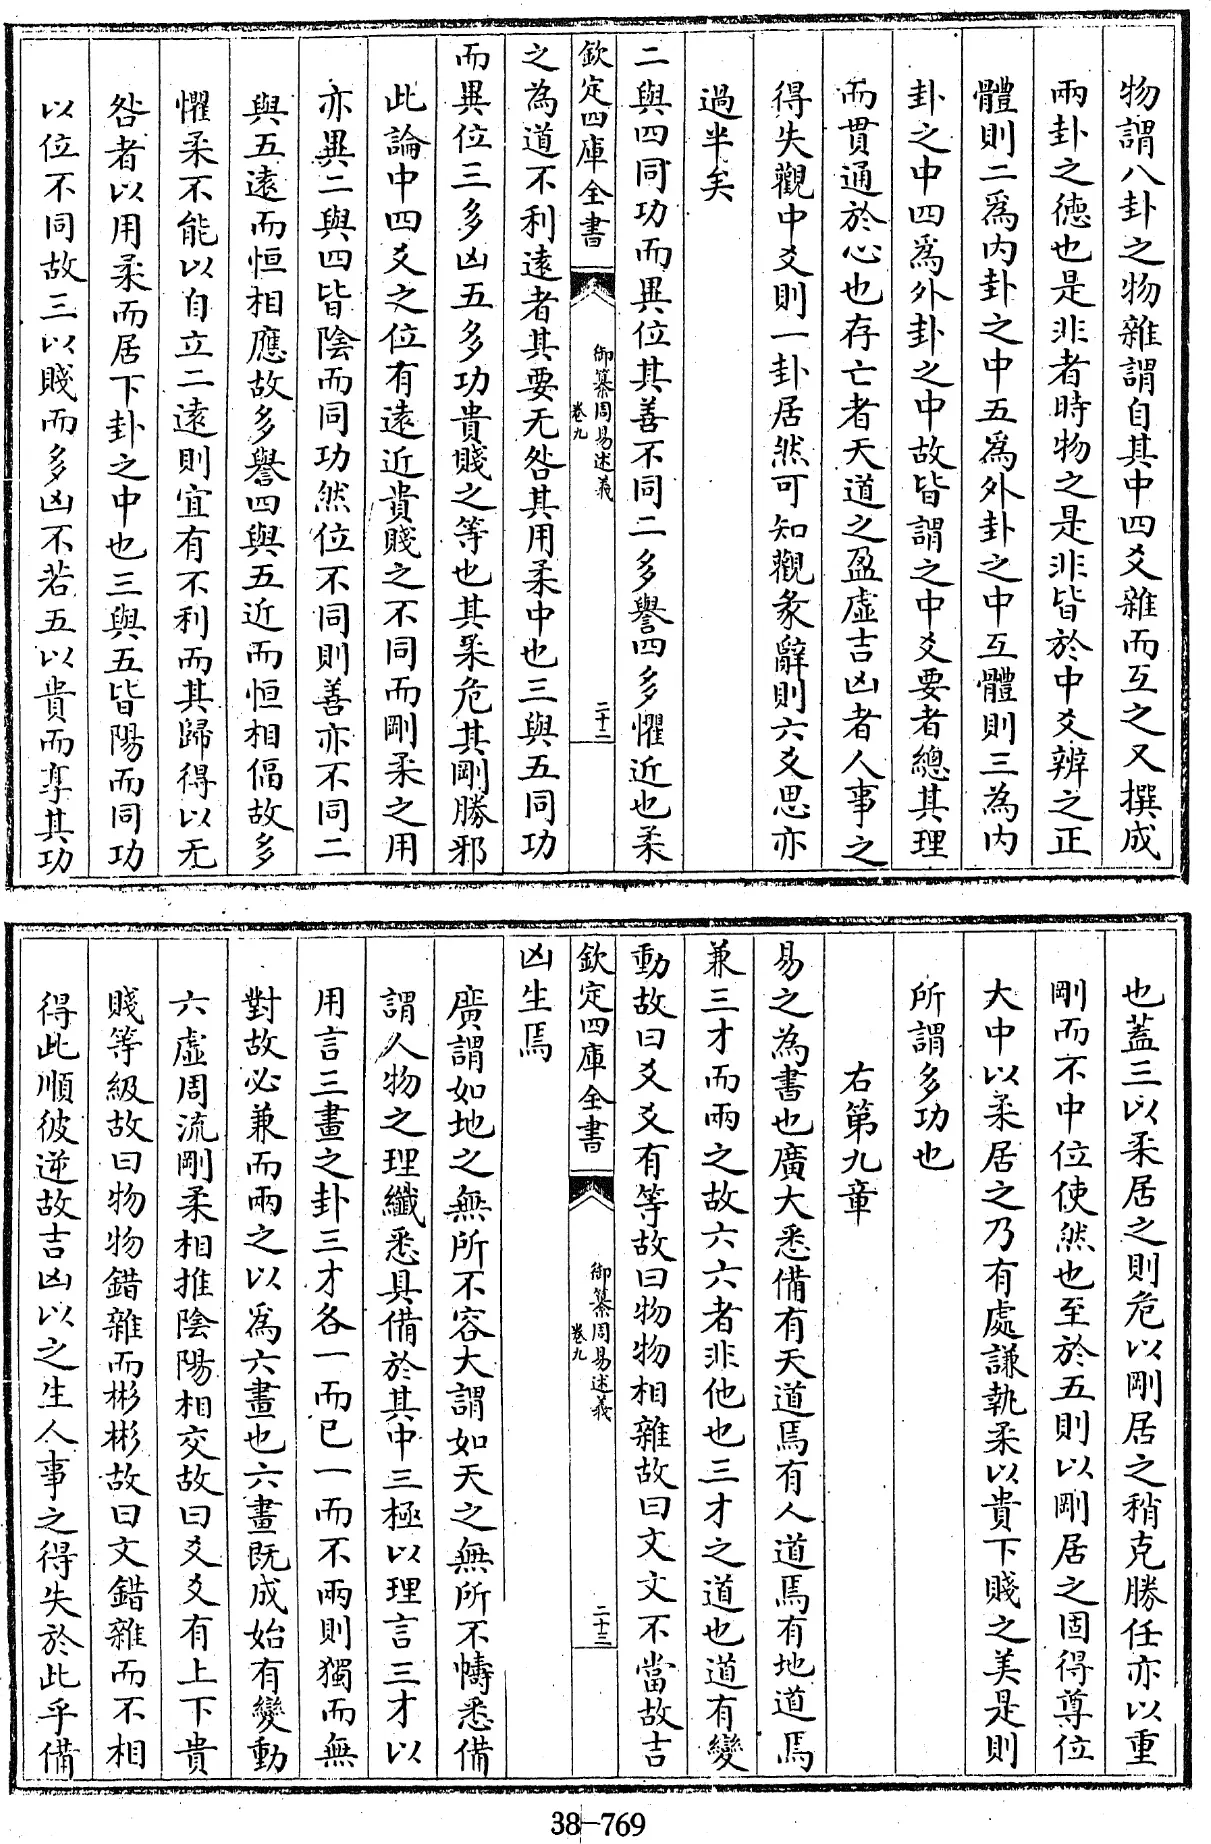 物謂八卦之物雜謂自其中四爻雜而互之又撰成
兩卦之德也是非者時物之是非皆於中爻辨之正
體則二爲内卦之中五爲外卦之中互體則三為内
卦之中四爲外卦之中故皆謂之中爻要者總其理
而貫通於心也存亡者天道之盈虛吉凶者人事之
得失觀中爻則一卦居然可知觀彖辭則六爻思亦
過半矣
二與四同功而異位其善不同二多譽四多懼近也柔
欽定四庫全書
御纂周易述義
卷九
二十二
之為道不利遠者其要无咎其用柔中也三與五同功
而異位三多凶五多功貴賤之等也其柔危其剛勝邪
此論中四爻之位有遠近貴賤之不同而剛柔之用
亦異二與四皆陰而同功然位不同則善亦不同二
與五遠而恒相應故多譽四與五近而恒相偪故多
懼柔不能以自立二遠則宜有不利而其歸得以无
咎者以用柔而居下卦之中也三與五皆陽而同功
以位不同故三以賤而多凶不若五以貴而享其功
也蓋三以柔居之則危以剛居之稍克勝任亦以重
剛而不中位使然也至於五則以剛居之固得尊位
大中以柔居之乃有處謙執柔以貴下賤之美是則
所謂多功也
右第九章
易之為書也廣大悉備有天道焉有人道焉有地道焉
兼三才而兩之故六六者非他也三才之道也道有變
動故曰爻爻有等故曰物物相雜故曰文文不當故吉
欽定四庫全書
御纂周易述義
卷九
二十三
凶生焉
廣謂如地之無所不容大謂如天之無所不幬悉備
謂人物之理纖悉具備於其中三極以理言三才以
用言三畫之卦三才各一而已一而不兩則獨而無
對故必兼而兩之以爲六畫也六畫既成始有變動
六虛周流剛柔相推陰陽相交故曰爻爻有上下貴
賤等級故曰物物錯雜而彬彬故曰文錯雜而不相
得此順彼逆故吉凶以之生人事之得失於此乎備
38-769